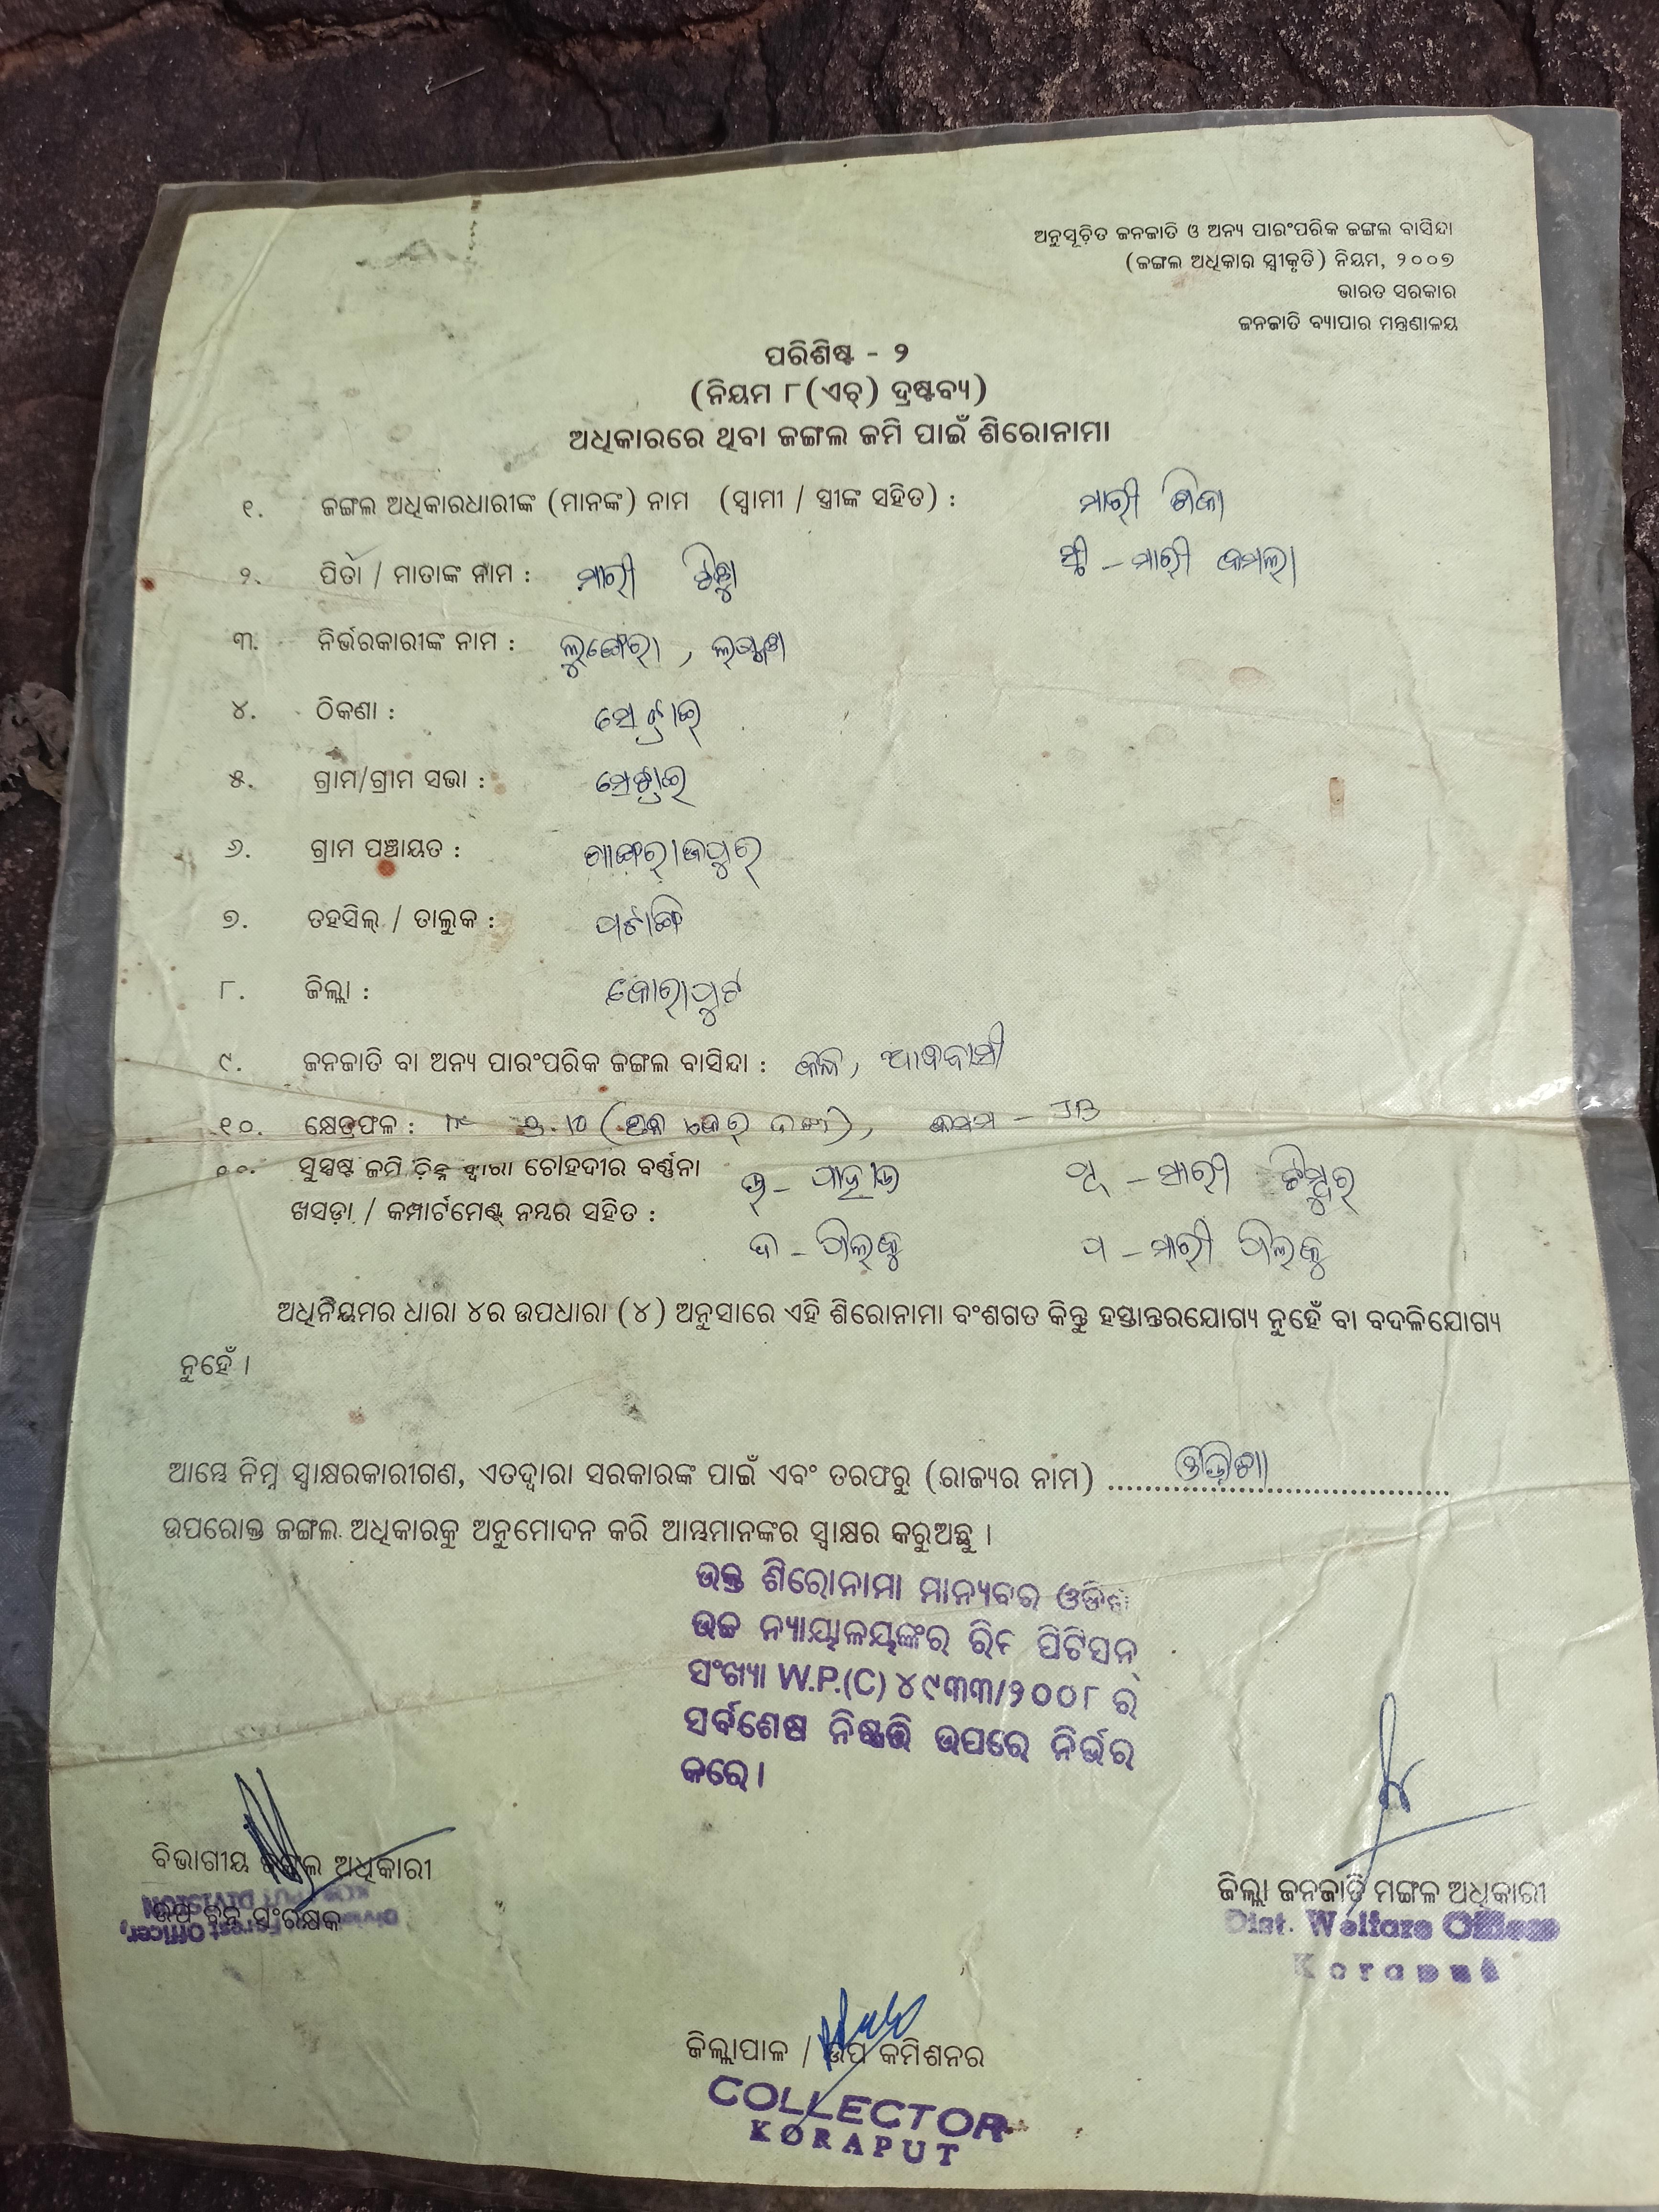 ଅନୁସୂଚିତ ଜନଜାତି ଓ ଅନ୍ୟ ପାରଂପରିକ ଜଙ୍ଗଲ ବାସିନ୍ଦା
(ଜଙ୍ଗଲ ଅଧିକାର ସ୍ୱୀକୃତି) ନିୟମ, ୨୦୦୭
ଭାରତ ସରକାର
ଜନଜାତି ବ୍ୟାପାର ମନ୍ତ୍ରଣାଳୟ
ପରିଶିଷ୍ଟ - ୨
(ନିୟମ ୮(ଏଚ୍) ଦ୍ରଷ୍ଟବ୍ୟ)
ଅଧିକାରରେ ଥିବା ଜଙ୍ଗଲ ଜମି ପାଇଁ ଶିରୋନାମା
୧. ଜଙ୍ଗଲ ଅଧିକାରଧାରୀଙ୍କ (ମାନଙ୍କ) ନାମ (ସ୍ୱାମୀ / ସ୍ତ୍ରୀଙ୍କ ସହିତ) : ମାରୀ
ସ୍ତ୍ରୀ - ମାରୀ କମଲା
୨. ପିତା / ମାତାଙ୍କ ନାମ : ମାରୀ
୩. ନିର୍ଭରକାରୀଙ୍କ ନାମ :
୪. ଠିକଣା :
୫. ଗ୍ରାମ/ଗ୍ରାମ ସଭା :
୬. ଗ୍ରାମ ପଞ୍ଚାୟତ :
୭. ତହସିଲ୍ / ତାଲୁକ : ପଟାଙ୍ଗି
୮. ଜିଲ୍ଲା : କୋରାପୁଟ
୯. ଜନଜାତି ବା ଅନ୍ୟ ପାରଂପରିକ ଜଙ୍ଗଲ ବାସିନ୍ଦା :
୧୦. କ୍ଷେତ୍ରଫଳ :
୧୧. ସୁସ୍ପଷ୍ଟ ଜମି ଚିହ୍ନ ଦ୍ୱାରା ଚୌହଦୀର ବର୍ଣ୍ଣନା ଉ - ପାହାଡ ପୂ - ମାରୀ
ଖସଡ଼ା / କମ୍ପାର୍ଟମେଣ୍ଟ୍ ନମ୍ବର ସହିତ : ଦ - ପ - ମାରୀ
ଅଧିନିୟମର ଧାରା ୪ର ଉପଧାରା (୪) ଅନୁସାରେ ଏହି ଶିରୋନାମା ବଂଶଗତ କିନ୍ତୁ ହସ୍ତାନ୍ତରଯୋଗ୍ୟ ନୁହେଁ ବା ବଦଳିଯୋଗ୍ୟ
ନୁହେଁ ।
ଆମ୍ଭେ ନିମ୍ନ ସ୍ୱାକ୍ଷରକାରୀଗଣ, ଏତଦ୍ୱାରା ସରକାରଙ୍କ ପାଇଁ ଏବଂ ତରଫରୁ (ରାଜ୍ୟର ନାମ) ଓଡ଼ିଶା
ଉପରୋକ୍ତ ଜଙ୍ଗଲ ଅଧିକାରକୁ ଅନୁମୋଦନ କରି ଆମ୍ଭମାନଙ୍କର ସ୍ୱାକ୍ଷର କରୁଅଛୁ ।
ଉକ୍ତ ଶିରୋନାମା ମାନ୍ୟବର ଓଡିଶା
ଉଚ୍ଚ ନ୍ୟାୟାଳୟଙ୍କର ରିଟ ପିଟିସନ୍
ସଂଖ୍ୟା W.P.(C) ୪୯୩୩/୨୦୦୮ ର
ସର୍ବଶେଷ ନିଷ୍ପତ୍ତି ଉପରେ ନିର୍ଭର
କରେ ।
ବିଭାଗୀୟ ଜଙ୍ଗଲ ଅଧିକାରୀ
ଉପ ବନ ସଂରକ୍ଷକ
Divisional Forest Officer,
KORAPUT DIVISION
ଜିଲ୍ଲା ଜନଜାତି ମଙ୍ଗଳ ଅଧିକାରୀ
Dist. Welfare Officer
Koraput
ଜିଲ୍ଲାପାଳ / ଉପ କମିଶନର
COLLECTOR
KORAPUT